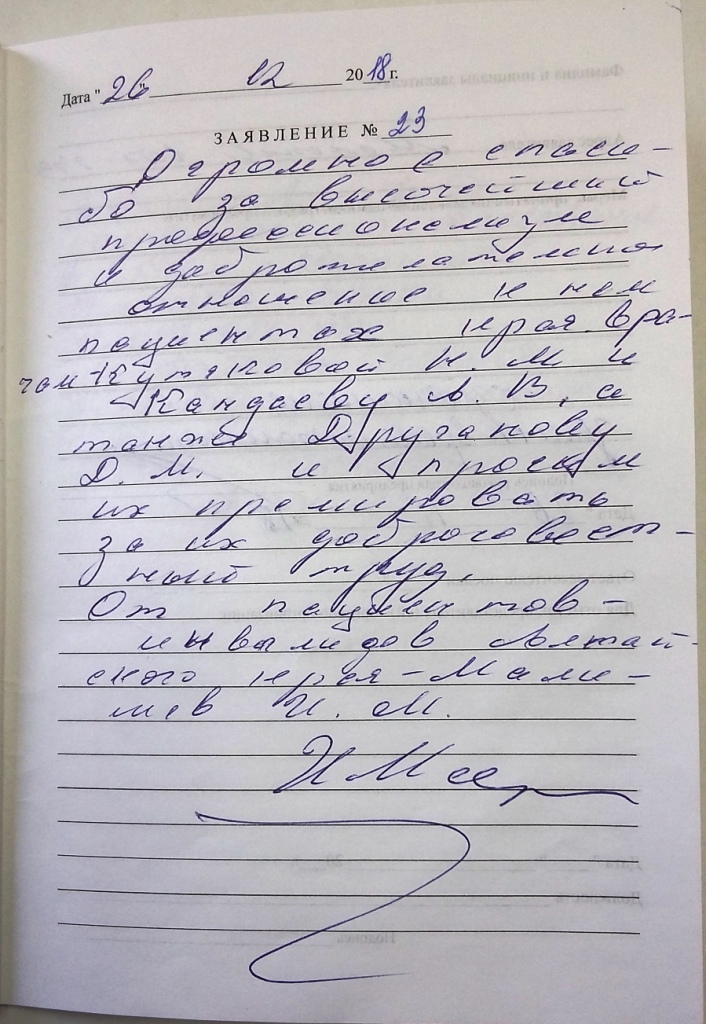 Дата "26" 12 2018 г.
ЗАЯВЛЕНИЕ № 23
Огромное спаси-
бо за высочайший
профессионализм
и доброжелательное
отношение к нам
пациентах края. Вра-
чам Кутяковой Н. М и
Кандаеву А. В, а
также Друганову
Д. М. и просим
их премировать
за их добросовест-
ный труд.
От пациентов-
инвалидов Алтай-
ского края - Мали-
шев И. М.